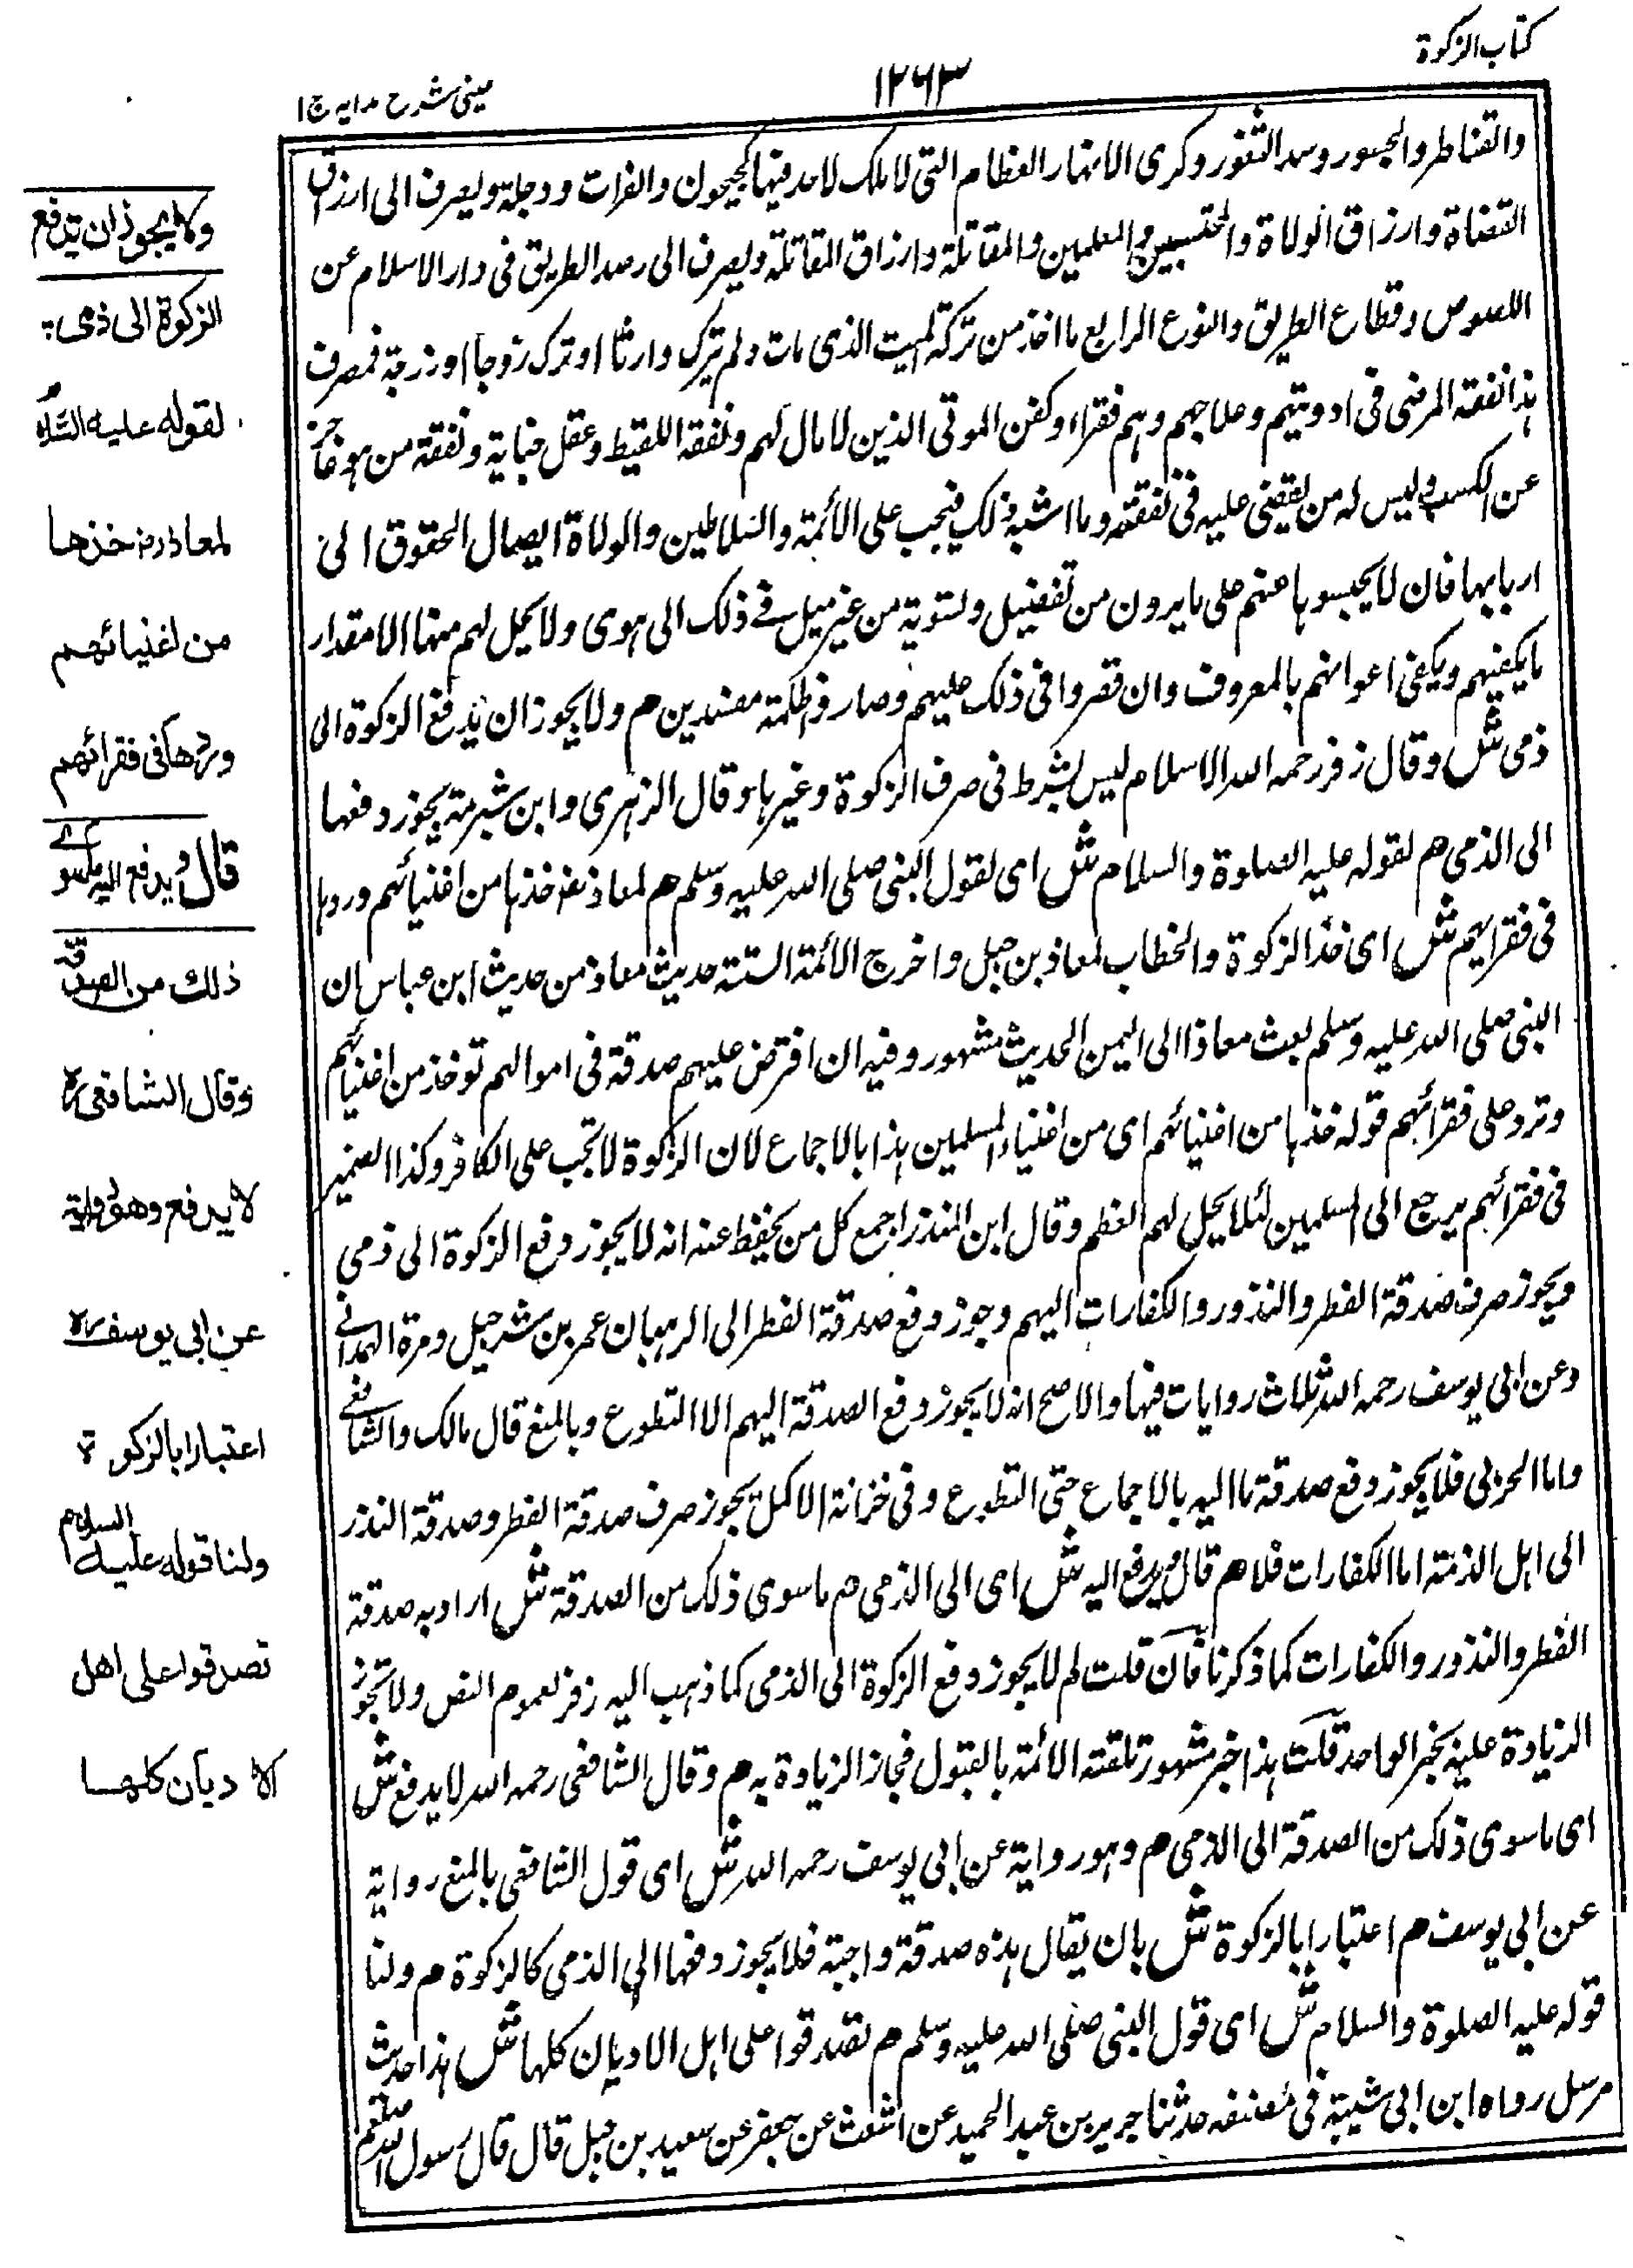 كتاب الزكوة
١٢٦٣
عينى شرح هدايه ج ١
والقناطر والجسور وسد الثغور وكرى الانهار العظام التى لا ملك لاحد فيها كجيحون والفرات ودجلة ويصرف الى ارزاق
القضاة وارزاق الولاة والمحتسبين والمعلمين والمقاتلة وارزاق المقاتلة ويصرف الى رصد الطريق فى دار الاسلام عن
اللصوص وقطاع الطريق والنوع الرابع ما اخذ من تركة الميت الذى مات ولم يترك وارثا او ترك زوجا او زوجة فمصرف
هذا نفقة المرضى فى ادويتهم وعلاجهم وهم فقراء وكفن الموتى الذين لا مال لهم ونفقة اللقيط وعقل جناية ونفقة من هو عاجز
عن الكسب وليس له من يقضى عليه فى نفقته وما اشبه ذلك فيجب على الائمة والسلاطين والولاة ايصال الحقوق الى
اربابها فان لا يحبسوها عنهم على ما يرون من تفضيل وتسوية من غير ميل فى ذلك الى هوى ولا يحل لهم منها الا مقدار
ما يكفيهم ويكفى اعوانهم بالمعروف وان قصروا فى ذلك عليهم وصاروا ظلمة مفسدين م ولا يجوز ان يدفع الزكوة الى
ذمى ش وقال زفر رحمه الله الاسلام ليس بشرط فى صرف الزكوة وغيرها وقال الزهرى وابن شبرمة يجوز دفعها
الى الذمى م لقوله عليه الصلوة والسلام ش اى لقول النبى صلى الله عليه وسلم م لمعاذ رضه خذها من اغنيائهم وردها
فى فقرائهم ش اى خذ الزكوة والخطاب لمعاذ بن جبل واخرج الائمة الستة حديث معاذ من حديث ابن عباس ان
النبى صلى الله عليه وسلم بعث معاذا الى اليمن الحديث مشهور وفيه ان افترض عليهم صدقة فى اموالهم توخذ من اغنيائهم
وترد على فقرائهم قوله خذها من اغنيائهم اى من اغنياء المسلمين هذا بالاجماع لان الزكوة لا تجب على الكافر وكذا الضمير
فى فقرائهم يرجع الى المسلمين لئلا يحل لهم النظم وقال ابن المنذر اجمع كل من يحفظ عنه انه لا يجوز دفع الزكوة الى ذمى
ويجوز صرف صدقة الفطر والنذور والكفارات اليهم وجوز دفع صدقة الفطر الى الرهبان عمر بن شرحبيل ومرة الهمدانى
وعن ابى يوسف رحمه الله ثلاث روايات فيها والاصح انه لا يجوز دفع الصدقة اليهم الا التطوع وبالمنع قال مالك والشافعى
واما الحربى فلا يجوز دفع صدقة ما اليه بالاجماع حتى التطوع وفى خزانة الاكمل يجوز صرف صدقة الفطر وصدقة النذر
الى اهل الذمة اما الكفارات فلا م قال ويدفع اليه ش اى الى الذمى م ما سوى ذلك من الصدقة ش اراد به صدقة
الفطر والنذور والكفارات كما ذكرنا فان قلت لم لا يجوز دفع الزكوة الى الذمى كما ذهب اليه زفر لعموم النص ولا تجوز
الزيادة عليه بخبر الواحد قلت هذا خبر مشهور تلقته الائمة بالقبول فجاز الزيادة به م وقال الشافعى رحمه الله لا يدفع ش
اى ما سوى ذلك من الصدقة الى الذمى م وهو رواية عن ابى يوسف رحمه الله ش اى قول الشافعى بالمنع رواية
عن ابى يوسف م اعتبارا بالزكوة ش بان يقال هذه صدقة واجبة فلا يجوز دفعها الى الذمى كالزكوة م ولنا
قوله عليه الصلوة والسلام ش اى قول النبى صلى الله عليه وسلم م تصدقوا على اهل الاديان كلها ش هذا حديث
مرسل رواه ابن ابى شيبة فى مصنفه حدثنا جرير بن عبد الحميد عن اشعث عن جعفر عن سعيد بن جبل قال قال رسول الله صلعم
ولا يجوز ان يدفع
الزكوة الى ذمى
لقوله عليه السلام
لمعاذ رضـ خذها
من اغنيائهم
وردها فى فقرائهم
قال ويدفع اليه ما سوے
ذلك من الصدقة
وقال الشافعى رح
لا يدفع وهو رواية
عن ابى يوسف رح
اعتبارا بالزكوة
ولنا قوله عليه السلام
تصدقوا على اهل
الاديان كلها